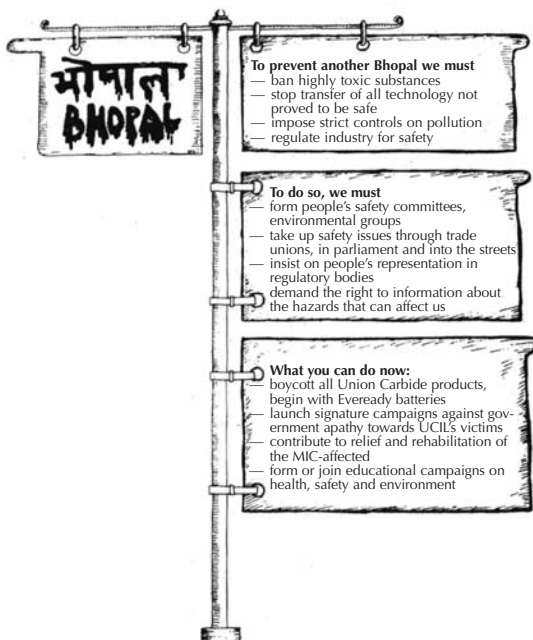 भोपाल
BHOPAL
To prevent another Bhopal we must
— ban highly toxic substances
— stop transfer of all technology not
proved to be safe
— impose strict controls on pollution
— regulate industry for safety
To do so, we must
— form people's safety committees,
environmental groups
— take up safety issues through trade
unions, in parliament and into the streets
— insist on people's representation in
regulatory bodies
— demand the right to information about
the hazards that can affect us
What you can do now:
— boycott all Union Carbide products,
begin with Eveready batteries
— launch signature campaigns against gov-
ernment apathy towards UCIL's victims
— contribute to relief and rehabilitation of
the MIC-affected
— form or join educational campaigns on
health, safety and environment